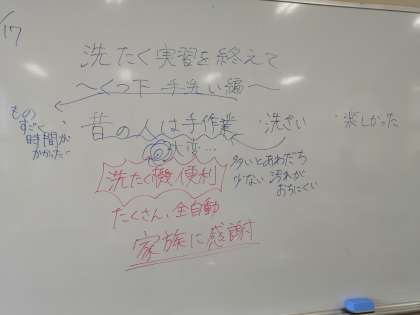 17
洗たく実習を終えて
～くつ下 手洗い編～
ものすごく時間がかかった
・昔の人は手作業
・洗ざい
・楽しかった
大変…
多いとあわだち
少ない 汚れが
おちにくい
洗たく機 便利
たくさん、全自動
家族に感謝